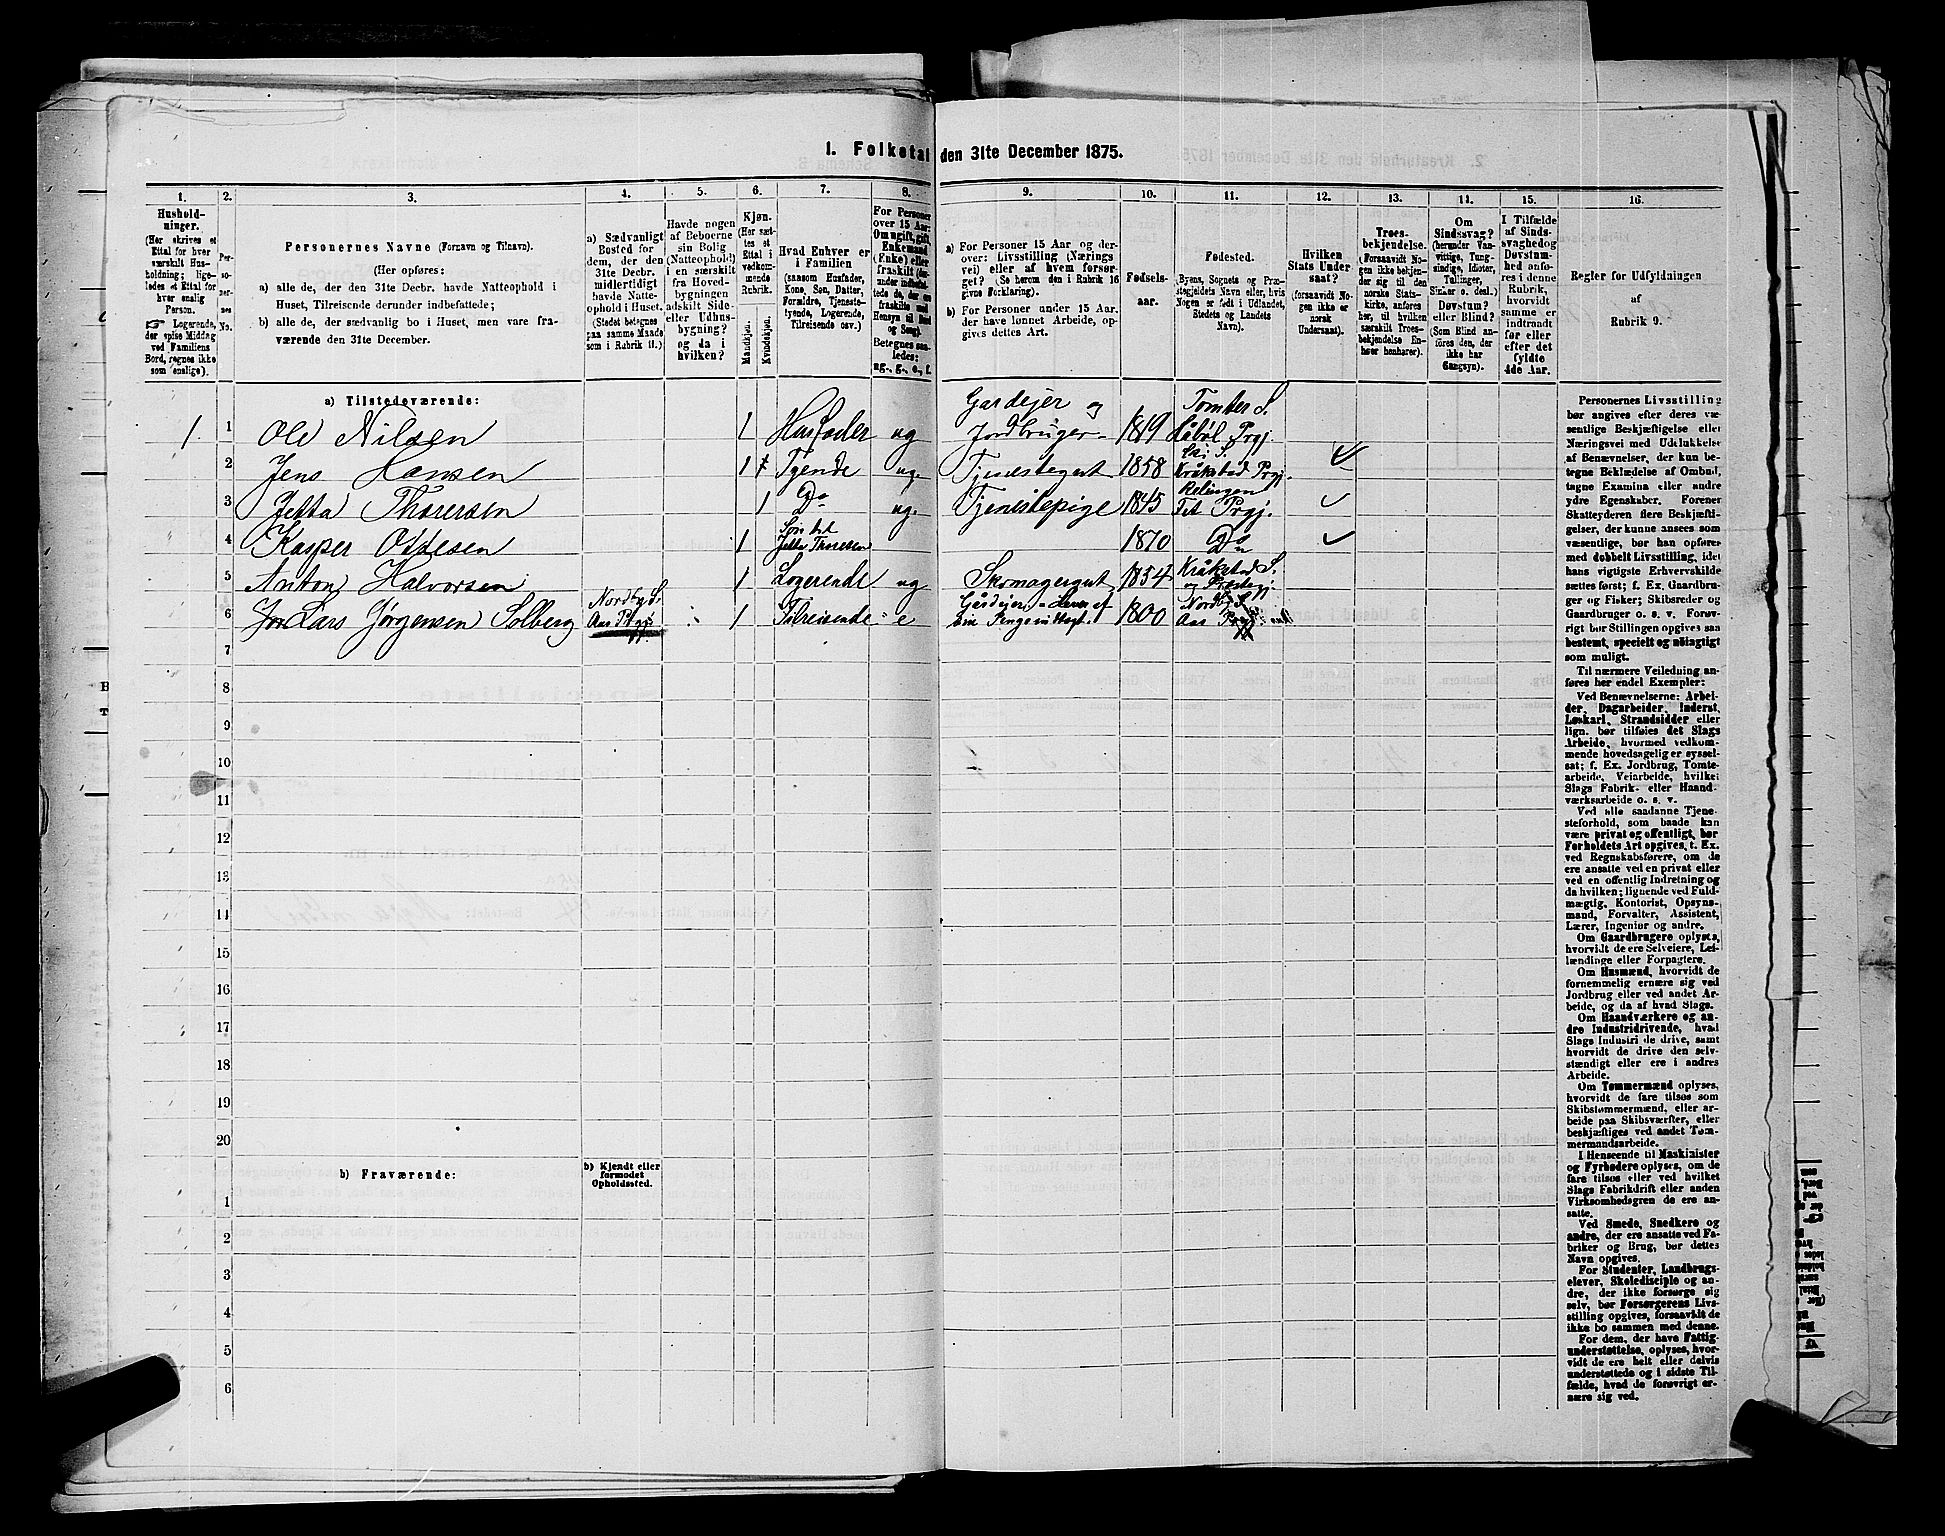 1. Folketal den 31te December 1875.
1.
Hushold-
ninger.
(Her skrives et
Ettal for hver
særskilt Hus-
holdning; lige-
ledes et Ettal for
hver enslig
Person.
Logerende,
der spise Middag
ved Familiens
Bord, regnes ikke
som enslige).
2.
Per-
so-
ner-
nes
No.
3.
Personernes Navne (Fornavn og Tilnavn).
(Her opføres:
a) alle de, der den 31te Decbr. havde Natteophold i
Huset, Tilreisende derunder indbefattede;
b) alle de, der sædvanlig bo i Huset, men vare fra-
værende den 31te December.
4.
a) Sædvanligt
Bosted for
dem, der den
31te Decbr.
midlertidigt
havde Natte-
ophold i Huset.
(Stedet betegnes
paa samme Maade
som i Rubrik 11.)
5.
Havde nogen
af Beboerne
sin Bolig
(Natteophold)
i en særskilt
fra Hoved-
bygningen
adskilt Side-
eller Udhus-
bygning?
og da i
hvilken?
6.
Kjøn.
(Her sæt-
tes et
Ettal i
vedkom-
mende
Rubrik.
Mandkjøn.
Kvindekjøn.
7.
Hvad Enhver er
i Familien
(saasom Husfader,
Kone, Søn, Datter,
Forældre, Tjeneste-
tyende, Logerende,
Tilreisende osv.)
8.
For Personer
over 15 Aar:
Om ugift, gift,
Enkemand
(Enke) eller
fraskilt
Betegnes saa-
ledes:
ug., g., e., f.
9.
a) For Personer 15 Aar og der-
over: Livsstilling (Nærings
vei) eller af hvem forsør-
get? (Se herom den i Rubrik 16
givne Forklaring).
b) For Personer under 15 Aar,
der have lønnet Arbeide, op-
gives dettes Art.
10.
Fødsels-
aar.
11.
Fødested.
(Byens, Sognets og Præ-
stegjeldets Navn eller, hvis
Nogen er født i Udlandet,
Stedets og Landets
Navn).
12.
Hvilken
Stats Under
saat?
(forsaavidt No-
gen ikke er
norsk
Undersaat).
13.
Troes-
bekjendelse.
(Forsaavidt No-
gen ikke bekjen-
der sig til den
norske Stats-
kirke, anføres
her, til hvilken
særskilt Troes-
bekjendelse En-
hver henhører).
14.
Om
Sindssvag?
(herunder Van-
vittige, Tung-
sindige, Idioter,
Tullinger,
Sinker o. desl.)
Døvstum?
eller Blind?
(Som Blind an-
føres den, der
ikke har
Gangsyn).
15.
I Tilfælde
af Sinds-
svaghed og
Døvstum-
hed anfø-
res i denne
Rubrik,
hvorvidt
samme er
indtraadt
før eller
efter det
fyldte
4de Aar.
16.
Regler for Udfyldningen
af
Rubrik 9.
a) Tilstedeværende:
1. 1 Ole Nilsen 1 Husfader ug Gardejer og Jordbruger 1819 Tomter S. Håbøl Prgj.
2 Jens Hansen 1 Tyende ug. Tjenstegut 1858 Ski S. Kråkstad Prgj.
3 Jetta Thoresen 1 Do ug. Tjenstepige 1845 Relingen Fet Prgj.
4 Kasper Ottesen 1 Søn til Jetta Thoresen 1870 Do
5 Anton Halvorsen 1 Logerende ug Skomagergut 1854 Kråkstad S. og Prestegj.
6 Lars Jørgensen Solberg Nordby S. Aas Prgj. 1 Tilreisende e Gårdejer Lever af sin Penge 1800 Nordby S. Aas Prgj.
7
8
9
10
11
12
13
14
15
16
17
18
19
20
b) Fraværende:
b) Kjendt eller
formodet
Opholdssted.
1
2
3
4
5
6
Personernes Livsstilling
bør angives efter deres væ-
sentlige Beskjæftigelse eller
Næringsvei med Udelukkelse
af Benævnelser, der kun be-
tegne Beklædelse af Ombud,
tagne Examina eller andre
ydre Egenskaber. Forener
Skatteyderen flere Beskjæfti-
gelser, der kunne ansees som
væsentlige, bør han opføres
med dobbelt Livsstilling, idet
hans vigtigste Erhvervskilde
sættes først; f. Ex. Gaardbru-
ger og Fisker; Skibsreder og
Gaardbruger o. s. v. Forøv-
rigt bør Stillingen opgives saa
bestemt, specielt og nøiagtigt
som muligt.
Til nærmere Veiledning an-
føres her endel Exempler:
Ved Benævnelserne: Arbei-
der, Dagarbeider, Inderst,
Løskarl, Strandsidder eller
lign. bør tilføies det Slags
Arbeide, hvormed vedkom-
mende hovedsagelig er syssel-
sat; f. Ex. Jordbrug, Tomte-
arbeide, Veiarbeide, hvilket
Slags Fabrik- eller Haand-
værksarbeide o. s. v.
Ved alle saadanne Tjene-
steforhold, som baade kan
være privat og offentligt, bør
Forholdets Art opgives, t. Ex.
ved Regnskabsførere, om de
ere ansatte ved en privat eller
ved en offentlig Indretning og
da hvilken; lignende ved Fuld-
mægtig, Kontorist, Opsyns-
mand, Forvalter, Assistent,
Lærer, Ingeniør og andre.
Om Gaardbrugere oplyses,
hvorvidt de ere Selveiere, Lei-
lændinge eller Forpagtere.
Om Husmænd, hvorvidt de
fornemmelig ernære sig ved
Jordbrug eller ved andet Ar-
beide, og da af hvad Slags.
Om Haandværkere og an-
dre Industridrivende, hvad
Slags Industri de drive, samt
hvorvidt de drive den selv-
stændigt eller ere i andres
Arbeide.
Om Tømmermænd oplyses,
hvorvidt de fare tilsøs som
Skibstømmermænd, eller ar-
beide paa Skibsværfter, eller
beskjæftiges ved andet Tøm-
mermandsarbeide.
I Henseende til Maskinister
og Fyrbødere oplyses, om de
fare tilsøs eller ved hvilket
Slags Fabrikdrift eller anden
Virksomhedsgren de ere an-
satte.
Ved Smede, Snedkere og
andre, der ere ansatte ved Fa-
briker og Brug, bør dettes
Navn opgives.
For Studenter, Landbrugs-
elever, Skoledisciple og an-
dre, der ikke forsørge sig
selv, bør Forsørgerens Livs-
stilling opgives, forsaavidt de
ikke bo sammen med denne.
For dem, der have Fattig-
understøttelse, oplyses, hvor-
vidt de ere helt eller delvis
understøttede og i sidste Til-
fælde, hvad de forøvrigt er-
nære sig ved.